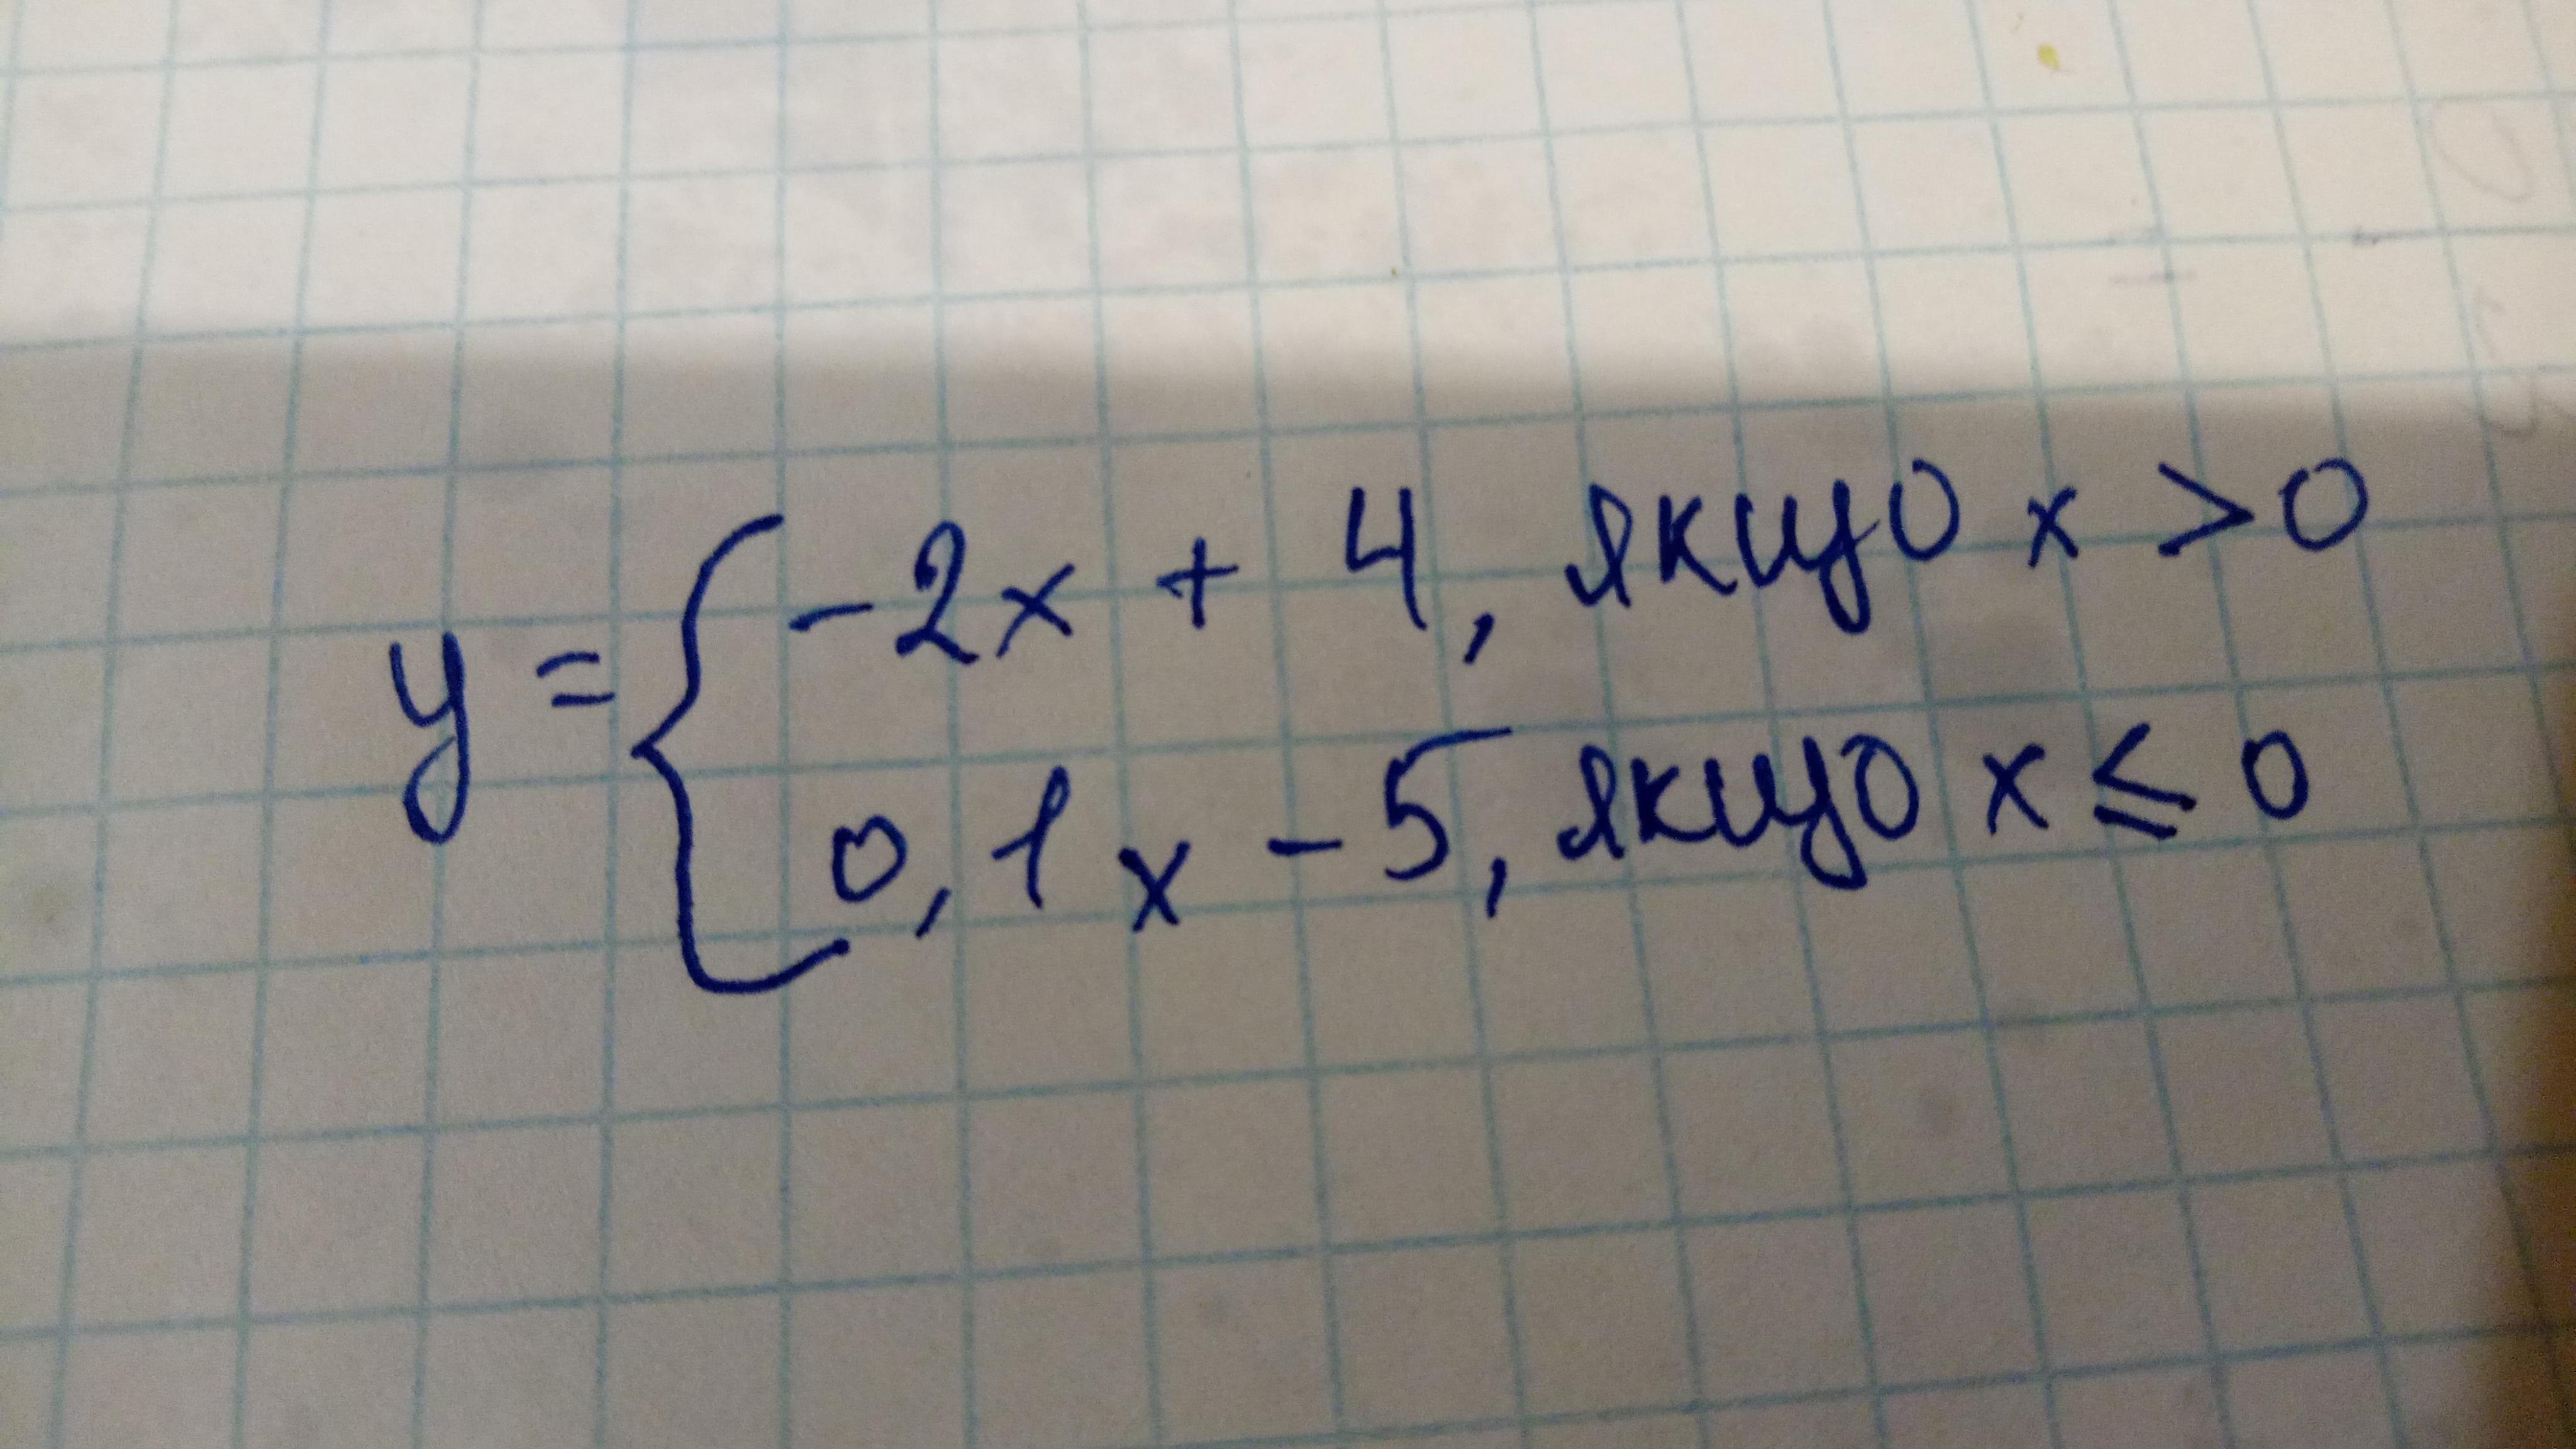 y = { -2x + 4, якщо x > 0
0,1x - 5, якщо x ≤ 0